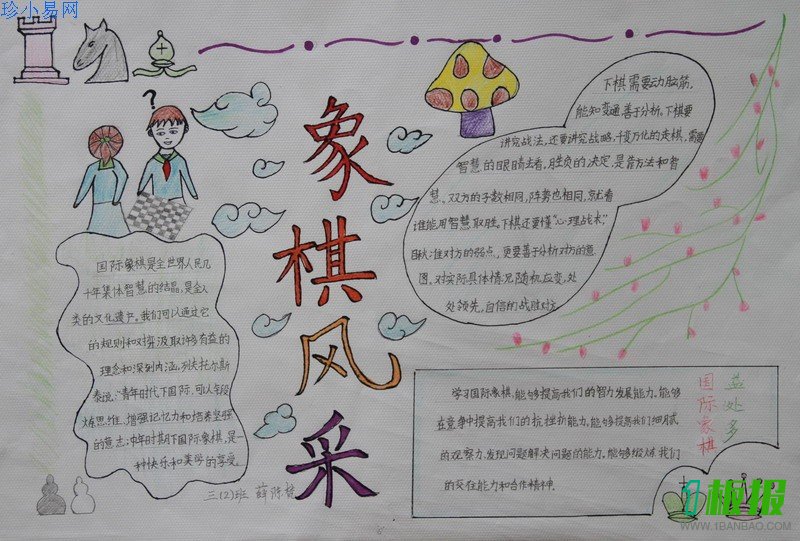 珍小易网
象棋风采
?
下棋需要动脑筋,
能知变通,善于分析,下棋要
讲究战法,还要讲究战略,千变万化的走棋,需要
智慧的眼睛去看,胜负的决定,是靠方法和智
慧、双方的子数相同,阵势也相同,就看
谁能用智慧取胜。下棋还要懂“心理战术”,
瞅准对方的弱点,更要善于分析对方的意
图,对实际具体情况随机应变,处
处领先,自信的战胜对方
国际象棋是全世界人民几
十年集体智慧的结晶,是全人
类的文化遗产。我们可以通过它
的规则和对弈汲取许多有益的
理念和深刻内涵。列夫托尔斯
泰说:“青年时代下国际,可以
炼思维、增强记忆力和培养坚强
的意志;中年时期下国际象棋,是一
种快乐和美好的享受。
三(2)班 薛
学习国际象棋,能够提高我们的智力发展能力。能够
在竞争中提高我们的抗挫折能力。能够提高我们细腻
的观察力、发现问题解决问题的能力。能够锻炼我们
的交往能力和合作精神.
国际象棋
益处多
1板报
WWW.1BANBAO.COM